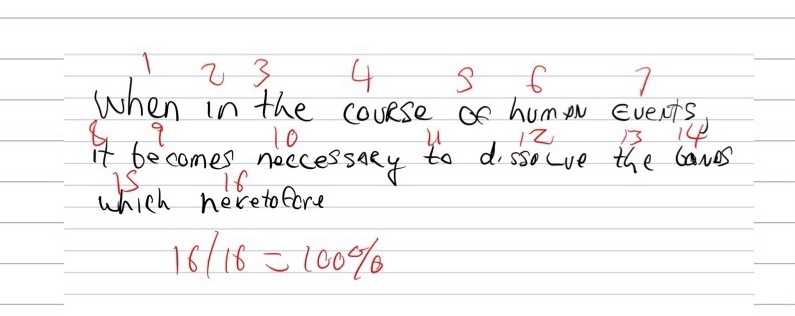 1 2 3 4 5 6 7
When in the course of human Events,
8 9 10 11 12 13 14
it becomes neccessary to dissolve the bands
15 16
which heretofore
16/16 = 100%